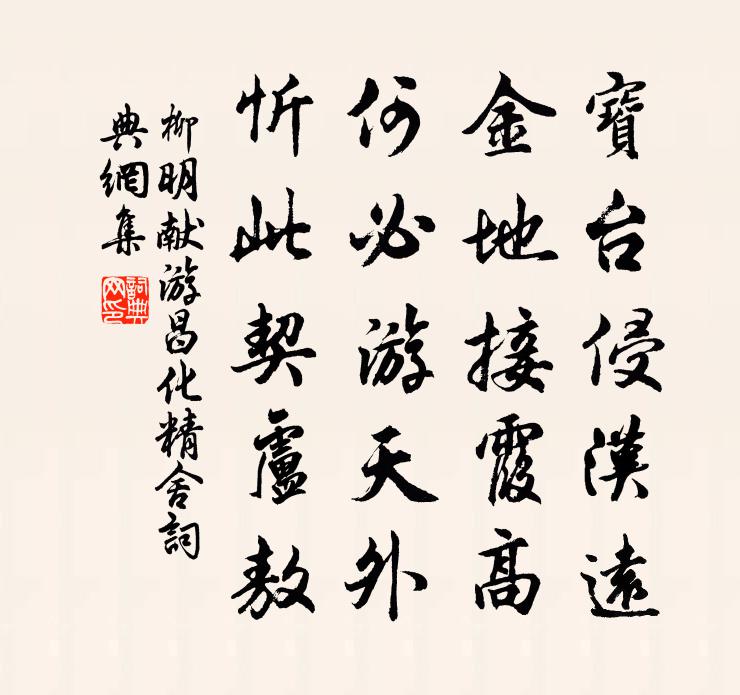 寶台侵漢遠
金地接霞高
何必游天外
忻此契盧敖
柳明献游昌化精舍詞
典網集
詞典网印